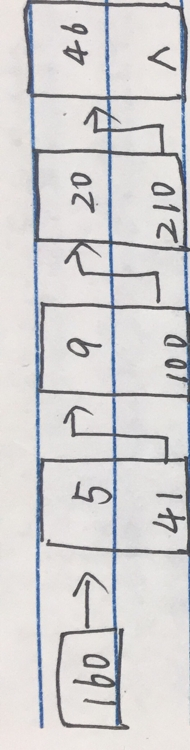 160
5 41
9 100
20 210
46 ∧